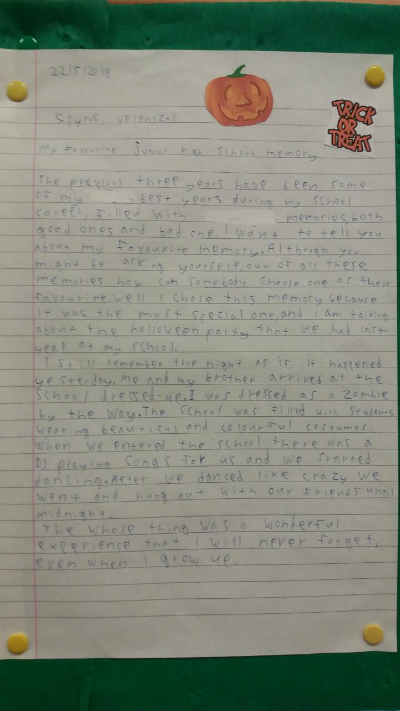 22/5/2018
TRICK
OR
TREAT
My favourite Junior high School memory
The previous three years have been some
of my best years during my school
career, filled with memories both
good ones and bad one I want to tell you
about my favourite memory. Although you
might be asking yourself, out of all these
memories how can somebody choose one as their
favourite. Well I chose this memory because
it was the most special one, and I am talking
about the halloween party that we had last
year at my school.
I still remember the night as is it happened
yesterday. Me and my brother arrived at the
school dressed-up. I was dressed as a zombie
by the way. The school was filled with students
wearing beautiful and colourful costumes.
When we entered the school there was a
DJ playing songs for us and we started
dancing. After we danced like crazy we
went and hang out with our friends until
midnight.
The whole thing was a wonderful
experience that I will never forget,
even when I grow up.